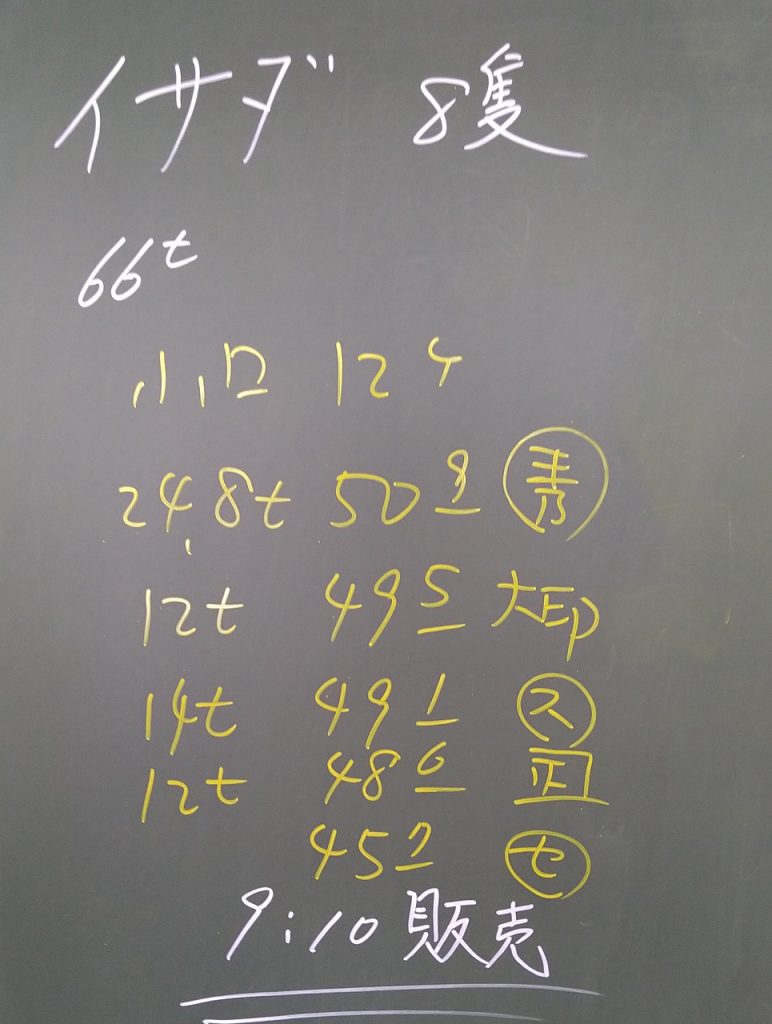 イサダ 8隻
66t
小口 12ケ
24,8t 50 9 秀
12t 49 5 大印
14t 49 1 ス
12t 48 6 正
45 7 セ
9:10 販売